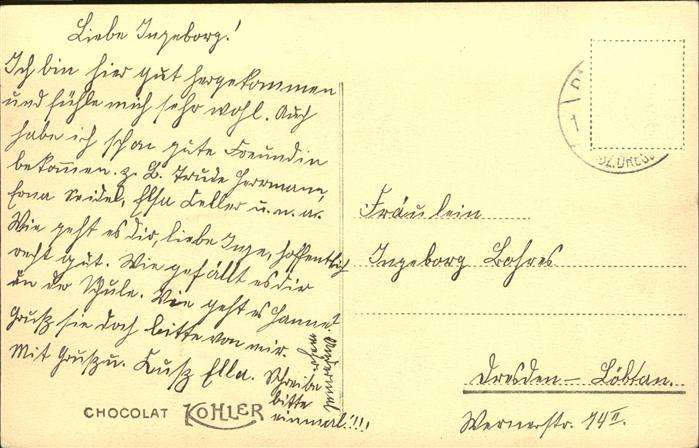 Liebe Ingeborg!
Ich bin hier gut hergekommen
und fühle mich sehr wohl. Auch
habe ich schon gute Freundin
bekommen. z. B. Trude Herrmann,
Erna Seidel, Elsa Keller u.n.a.
Wie geht es dir, liebe Inge, hoffentlich
recht gut. Wie gefällt es dir
in der Schule. Wie geht es Hanne?
Grüße sie doch bitte von mir.
Mit Gruß u. Kuß Ella.
Schreibe
bitte
einmal!!!!
CHOCOLAT KOHLER
Fräulein
Ingeborg Bohres
Dresden – Löbtau.
Wernerstr. 14 II.
BZ. DRESD